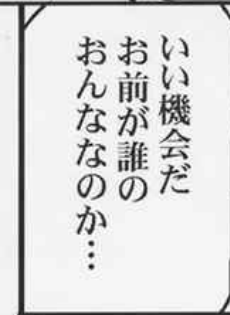 いい機会だ
お前が誰の
おんななのか…